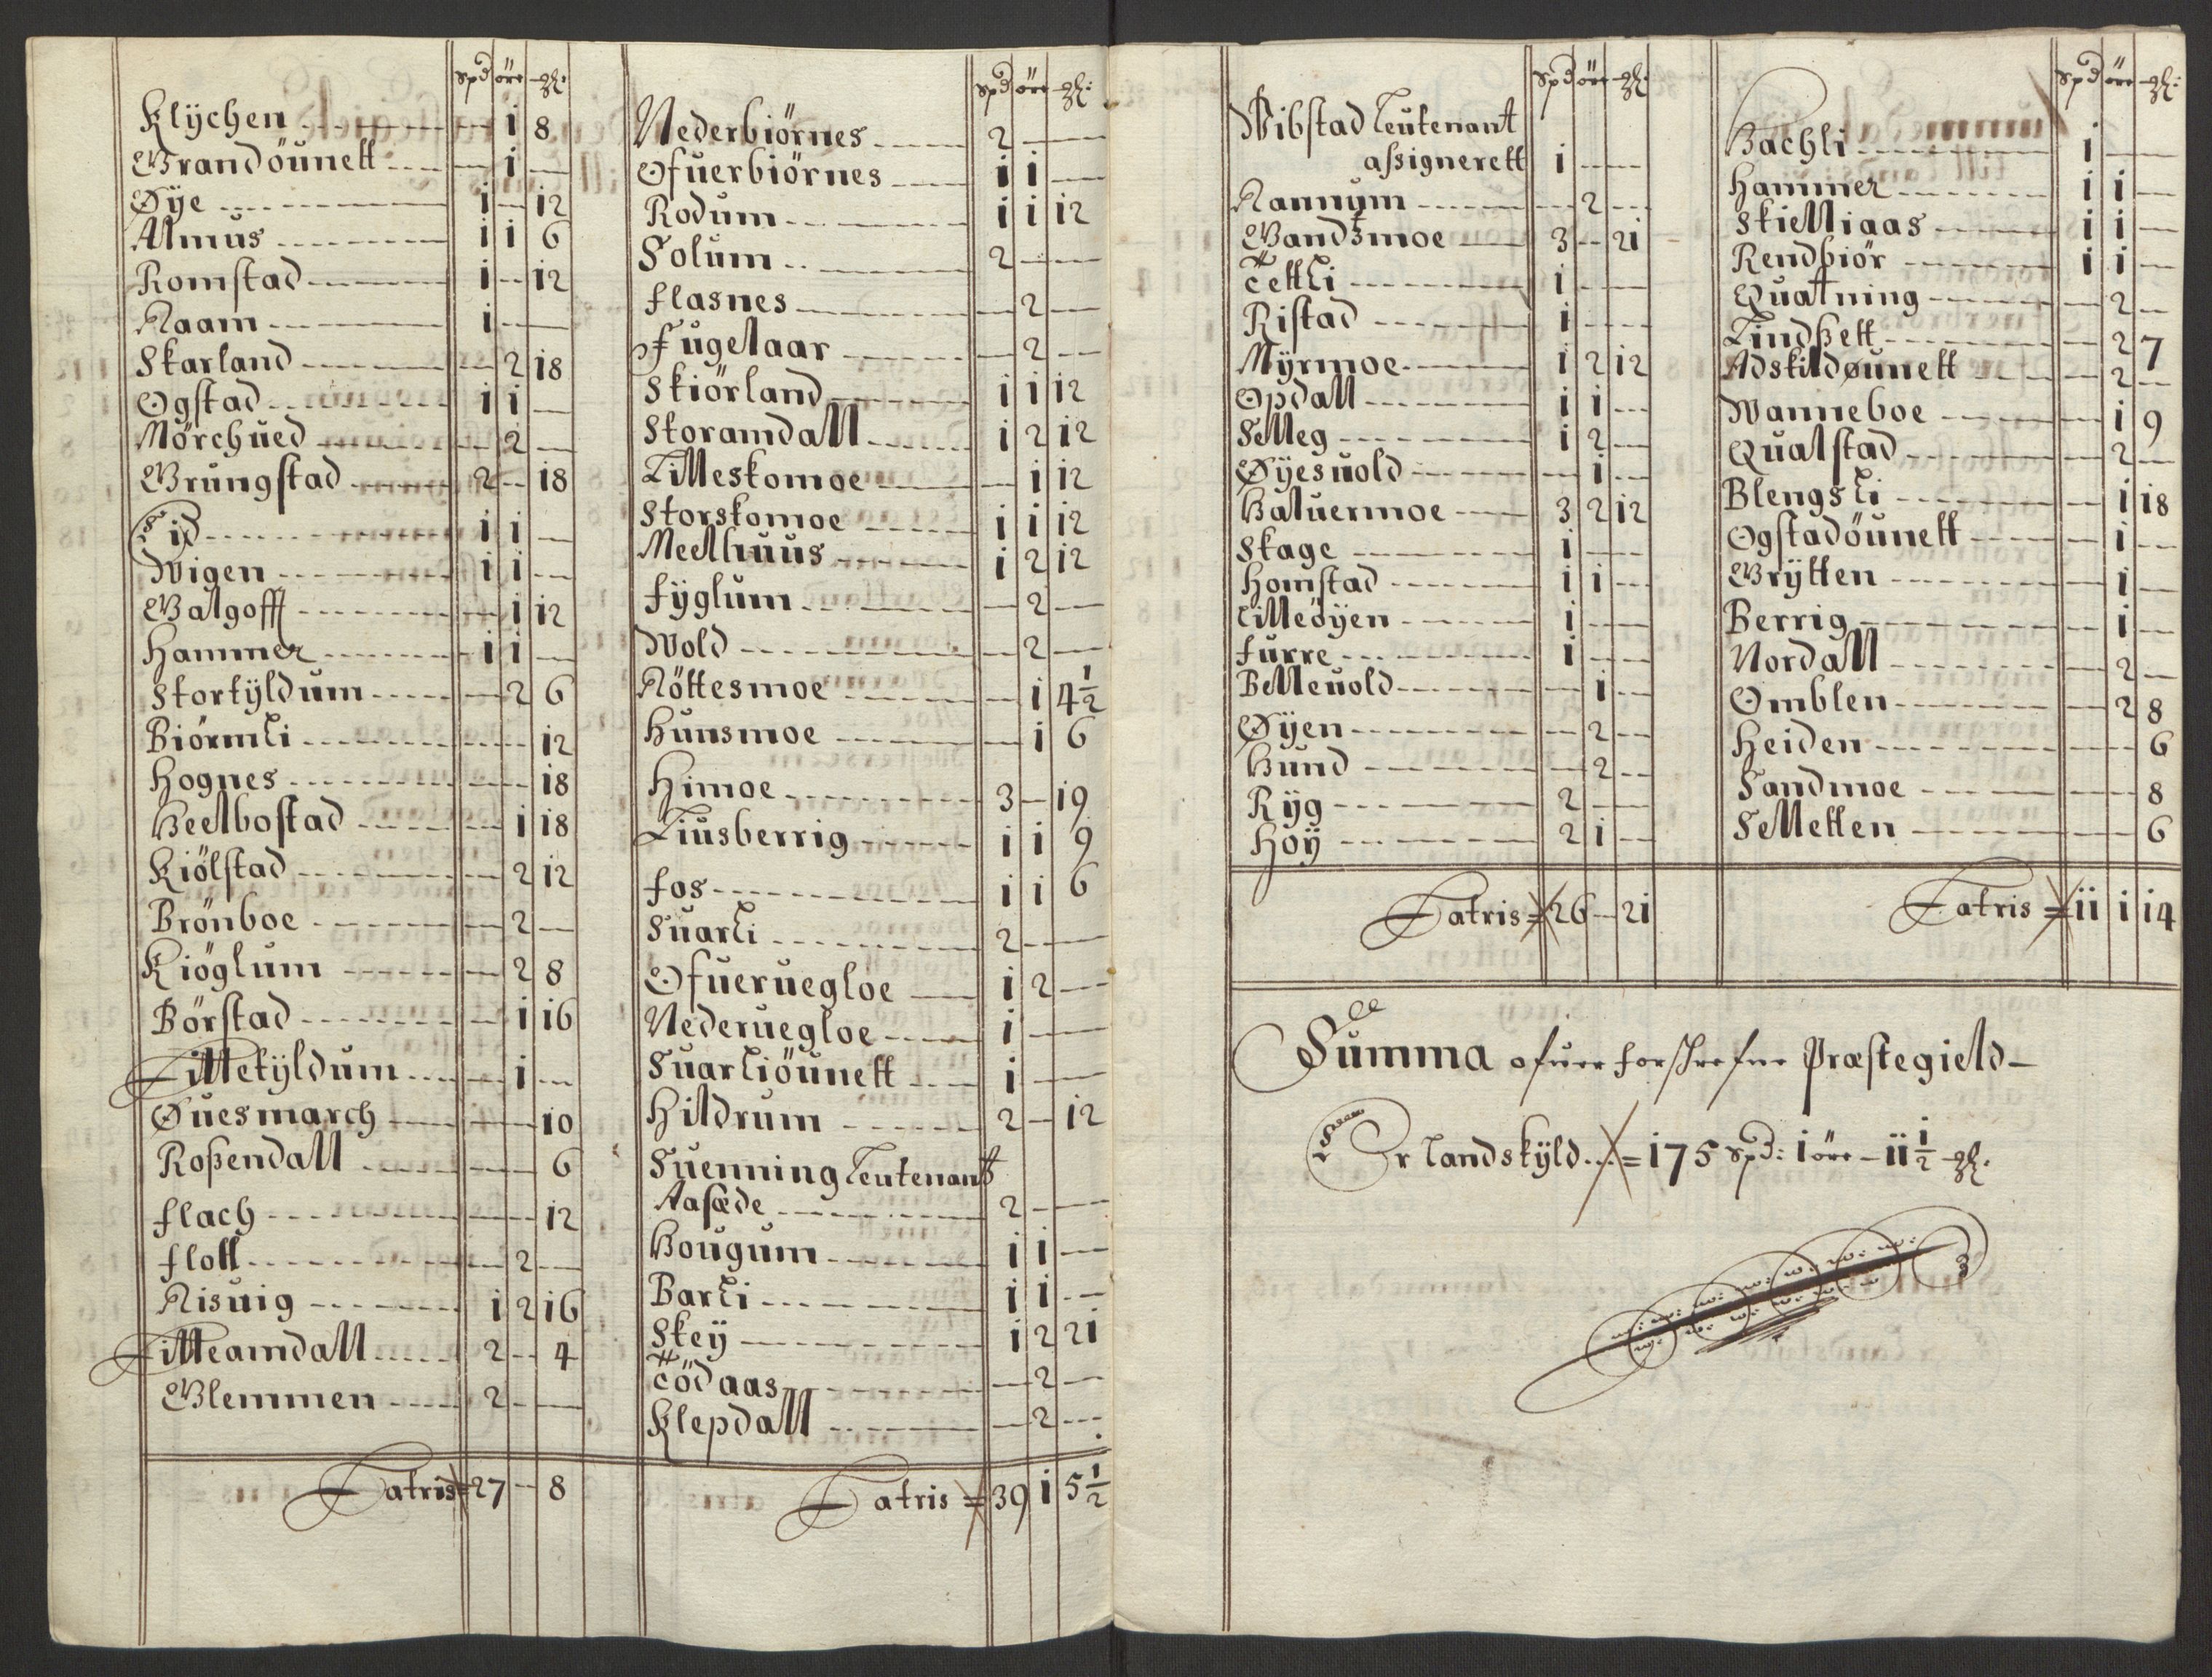 Spd öre gl:
Klÿchen i 8
Grandöunett i
Øÿe i 12
Almus i i 6
Romstad i 12
Aaam i
Skarland 2 18
Ogstad i i
Mörchued 2
Grungstad 2 18
Lid i i
Wigen i i
Galgofft i 12
Hammer i i
Stortÿldum 2 6
Biörmli 12
Hognes 18
Heelbostad i 18
Kiölstad 2 12
Brönboe 2
Kiöglum 2 8
Börstad i 16
Lilletÿldum i
Øuesmarch 10
Roßendall 6
Flach 12
Flott 2
Aisuig i 2 16
Lilleamdall 2 4
Glemmen 2
Latris = 27 8
Spd öre gl:
Nederbiörnes 2
Ofuerbiörnes i i
Rodum i i 12
Solum 2
Flasnes 2
Fugelaar 2
Skiörland i i 12
Storamdall i 2 12
Lilleskomoe i 12
Storskomoe i i 12
Meelhuus i 2 12
Fÿglum 2
Wold 2
Nöttesmoe i 4½
Hunsmoe i 6
Himoe 3 19
Liusberrig i i 9
Fos i i 6
Suarli 2
Ofueruegloe i 2
Nederuegloe i
Suarliöunett i
Hildrum 2 12
Suenning Leutenant
Aasæde 2
Hougum i i
Barli i i
Skeÿ i 2 21
Tödaas 2
Klepdall 2
Latris = 39 i 5½
Spd öre gl:
Wibstad Leutenant
assignerett i
Rannum 2
Gandzmoe 3 21
Tettli i
Ristad i
Mÿrmoe i 2 12
Opdall i i
Selleg i 2
Øÿesuold i
Haluermoe 3 2 12
Skage i
Homstad i i
Lilleöÿen i
Furre i
Belleuold i
Øÿen 2
Hund 2
Rÿg 2
Hoÿ 2 i
Latris = 26 21
Spd öre gl:
Bachli i
Hammer i i
Skielliaas i i
Rendbiör i i
Qualning 2
Lindßett 2 7
Adskildøunett 2
Wanneboe i 9
Qualstad 2
Blengsli i 18
Ogstadöunett i
Grÿtten i
Berrig i
Nordall 2
Omblen 2 8
Heiden 6
Sandmoe 8
Selletten 6
Latris = ii i 14
Summa ofuer forschrefne Præstegield
Er Landskÿld = 175 Spd: 1 öre - ii½ gl.